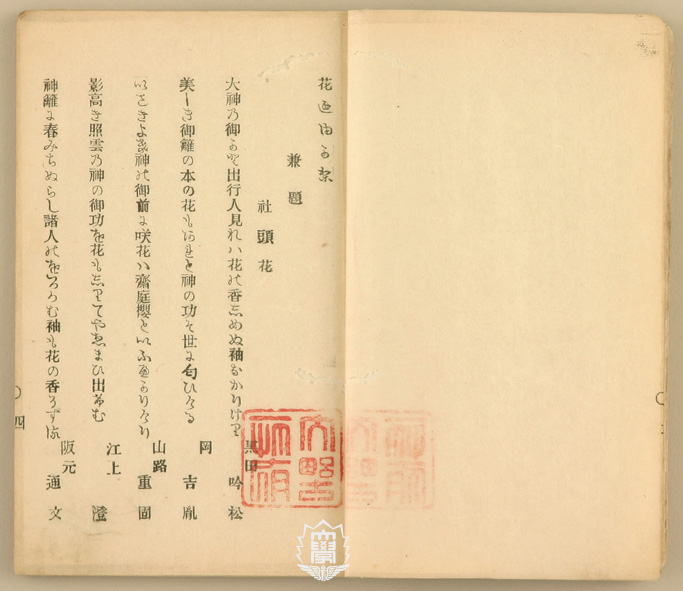 花
兼題
社頭花
大神乃御かど出行人見れハ花の香しめぬ袖なかりけり
黒田吟松
美しき御籬の本の花もあれど神の功ぞ世に匂ひける
岡吉胤
いさぎよき神の御前に咲花ハ齋庭櫻といふべかりけり
山路重固
影高き照雲乃神の御功を花もしりてやゑまひ出らむ
江上澄
神籬に春みちぬらし諸人のをろがむ袖も花の香ぞする
阪元通文
四